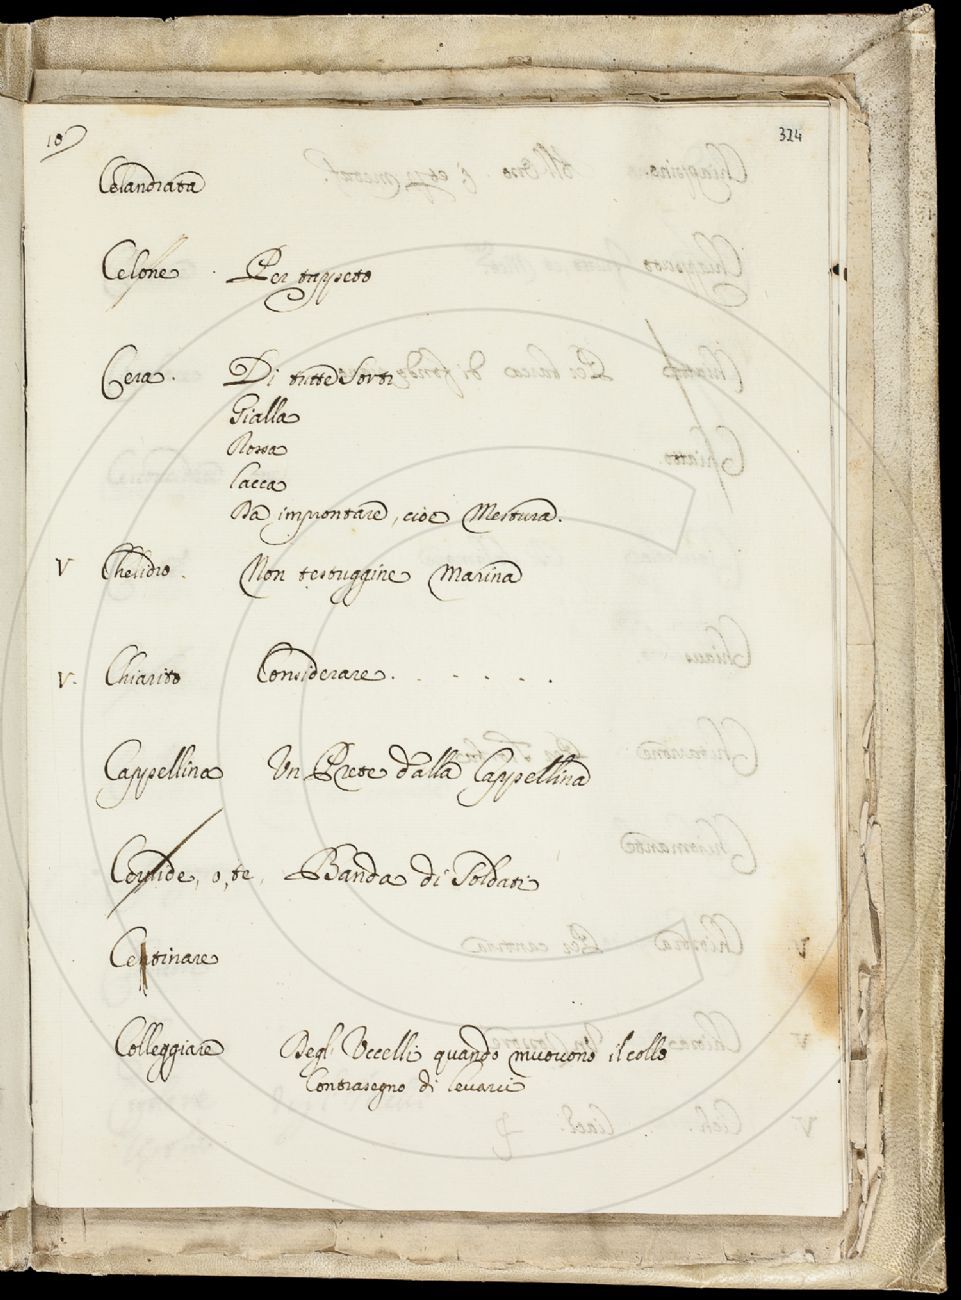 10
324
Celandrata
Celone . Per tappeto
Cera . Di tutte Sorti
Gialla
Rossa
Lacca
Da improntare, cioe Mestura.
V Chelidro . Non testuggine Marina
V. Chiarito Considerare . . . . . .
Cappellina Un Prete dalla Cappellina
o, te, Banda di Soldati
Centinare
Colleggiare Degl' Uccelli quando muovono il collo
Contrasegno di levarsi